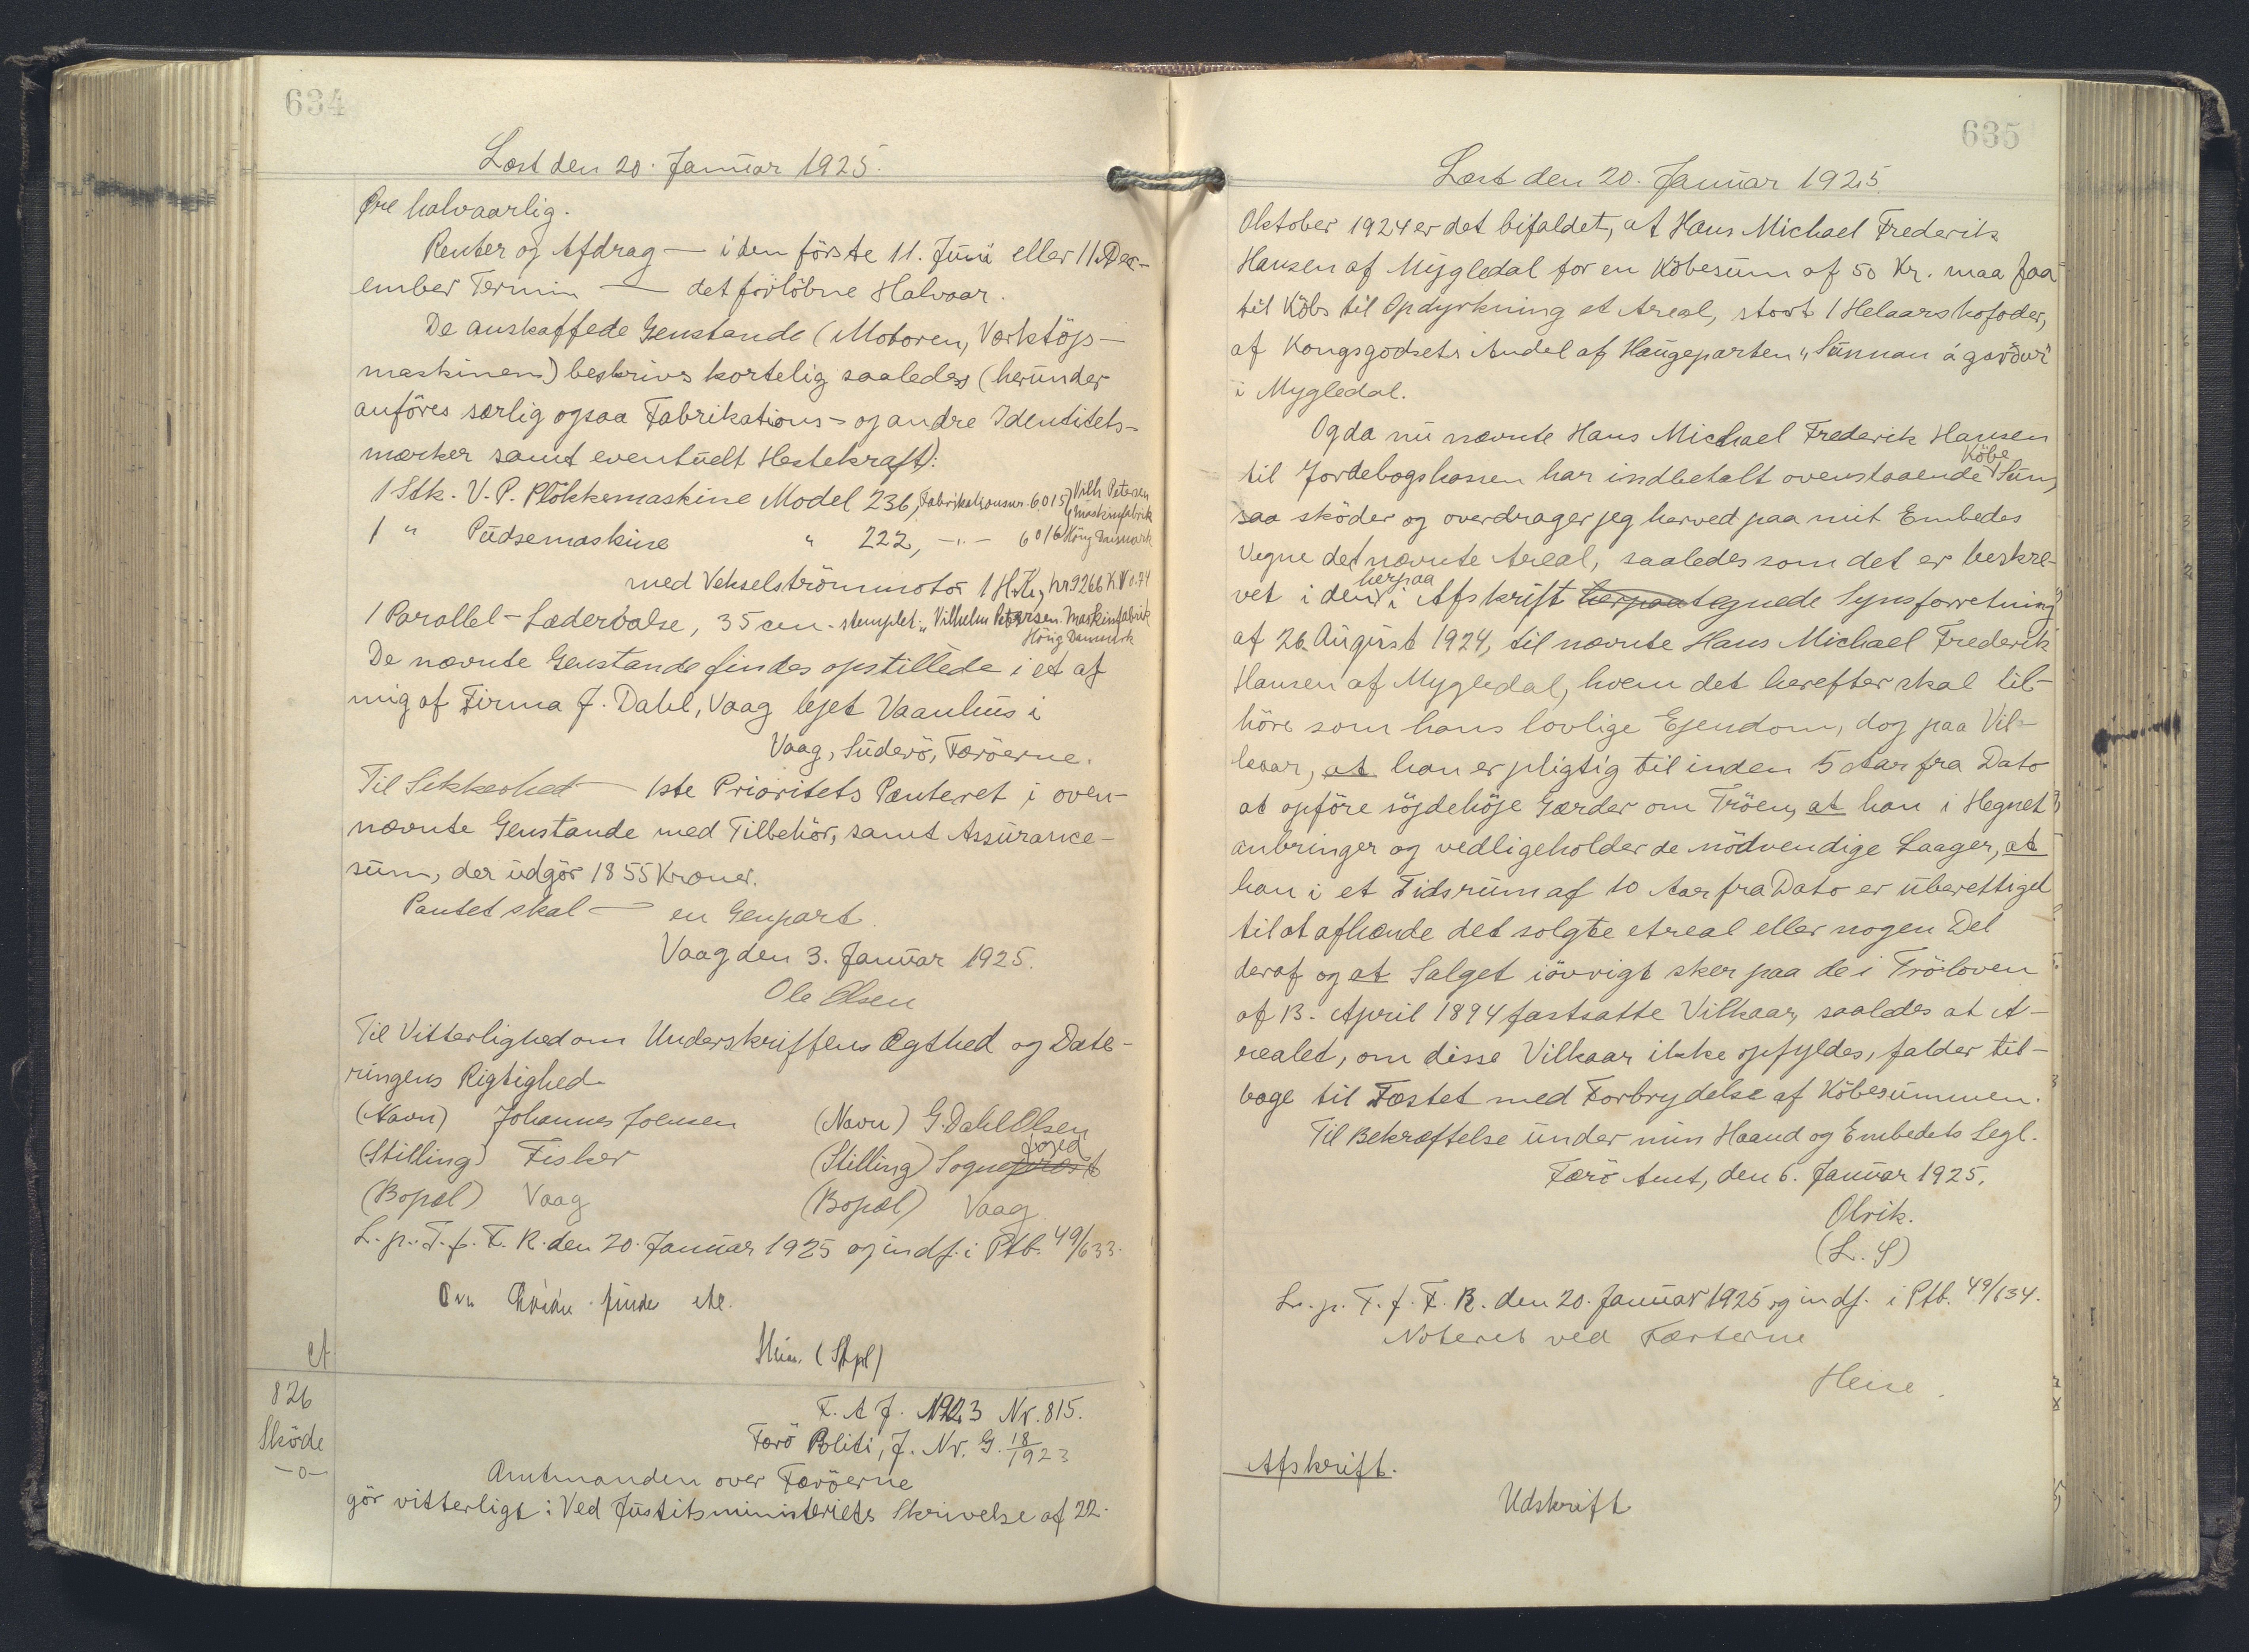 634
Læst den 20. Januar 1925.
Øre halvaarlig.
Renter og Afdrag — i den förste 11. Juni eller 11. Dec-
ember Termin — det forlöbne Halvaar.
De anskaffede Genstande (Motoren, Værktöjs-
maskinen) beskrives kortelig saaledes (herunder
anföres særlig ogsaa Fabrikations- og andre Identitets-
mærker samt eventuelt Hestekraft):
1 Stk. V. P. Plökkemaskine Model 236, Fabrikationsnr. 6015 Vilh. Petersen
Maskinfabrik
1 " Pudsemaskine " 222, -"- 6016 Höng Danmark
med Vekselströmmotor 1 H.K., Nr. 9266 K.V 0.74
1 Parallel-Lædervalse, 35 cm. stemplet: "Vilhelm Petersen. Maskinfabrik
Höng Danmark
De nævnte Genstande findes opstillede i et af
mig af Firma J. Dahl, Vaag lejet Vaanhus i
Vaag, Suderö, Færöerne.
Til Sikkerhed — 1ste Prioritets Panteret i oven-
nævnte Genstande med Tilbehör, samt Assurance-
sum, der udgör 1855 Kroner.
Pantet skal — en Genpart.
Vaag den 3. Januar 1925.
Ole Olsen
Til Vitterlighed om Underskriftens Ægthed og Date-
ringens Rigtighed.
(Navn) Johannes Joensen (Navn) G. Dahl Olsen
foged
(Stilling) Fisker (Stilling) Sognepræst
(Bopæl) Vaag (Bopæl) Vaag
L. p. T. f. F. R. den 20. Januar 1925 og indf. i Ptb. 49/633.
Heise. (Stpl)
826
Sköde
-o-
F. A J. 1923 Nr. 815.
Færö Politi, J. Nr. G. 18/1923
Amtmanden over Færöerne
gör vitterligt: Ved Justitsministeriets Skrivelse af 22.
635
Læst den 20. Januar 1925.
Oktober 1924 er det bifaldet, at Hans Michael Frederik
Hansen af Mygledal for en Köbesum af 50 Kr. maa faa
til Köbs til Opdyrkning et Areal, stort 1 Helaarskofoder,
af Kongsgodsets Andel af Haugeparten "Sunnan á gørðun"
i Mygledal.
Og da nu nævnte Hans Michael Frederik Hansen
Köbe
til Jordebogskassen har indbetalt ovenstaaende Sum,
saa sköder og overdrager jeg herved paa mit Embedes
Vegne det nævnte Areal, saaledes som det er beskre-
herpaa
vet i den i Afskrift herpaa tegnede Synsforretning
af 26. August 1924, til nævnte Hans Michael Frederik
Hansen af Mygledal, hvem det herefter skal til-
höre som hans lovlige Ejendom, dog paa Vil-
kaar, at han er pligtig til inden 5 Aar fra Dato
at opföre söjdehöje Gærder om Tröen, at han i Hegnet
anbringer og vedligeholder de nödvendige Laager, at
han i et Tidsrum af 10 Aar fra Dato er uberettiget
til at afhænde det solgte Areal eller nogen Del
deraf og at Salget iövrigt sker paa de i Tröloven
af 13. April 1894 fastsatte Vilkaar, saaledes at A-
realet, om disse Vilkaar ikke opfyldes, falder til-
bage til Fæstet med Forbrydelse af Köbesummen.
Til Bekræftelse under min Haand og Embedets Segl.
Færö Amt, den 6. Januar 1925.
Olrik.
(L. S)
L. p. T. f. F. R. den 20. Januar 1925 og indf. i Ptb. 49/634.
Noteret ved Fæsterne
Heise.
Afskrift.
Udskrift